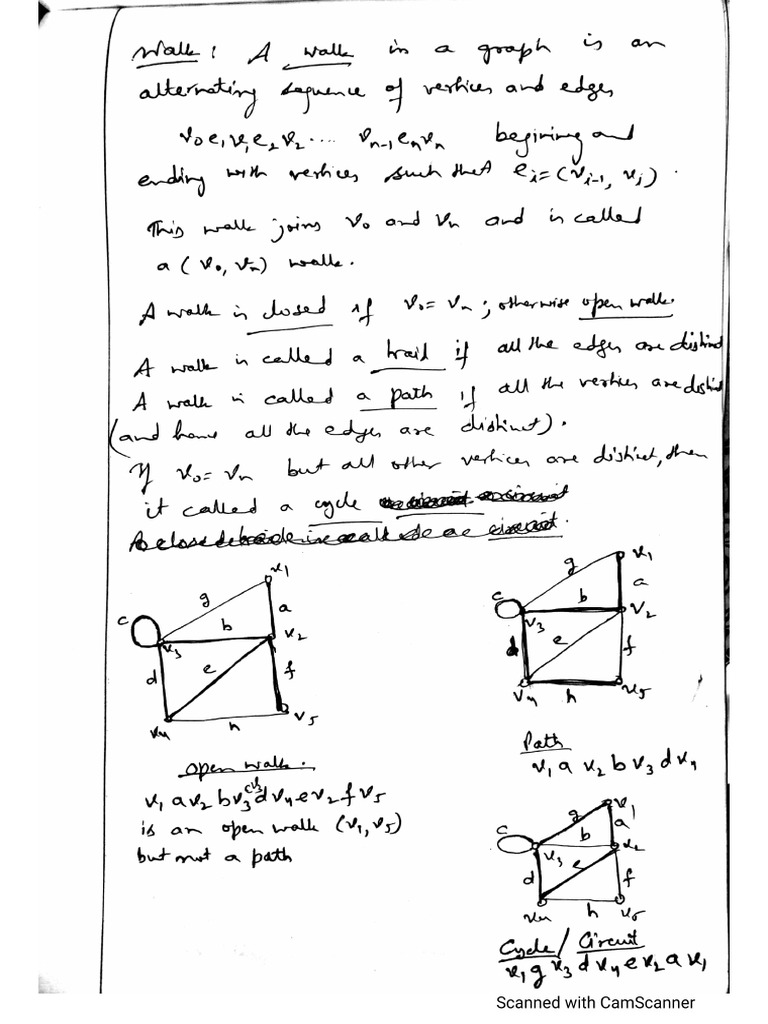 Walk: A walk in a graph is an
alternating sequence of vertices and edges
v0e1v1e2v2.... vn-1envn begining and
ending with vertices such that ei=(vi-1, vi).
This walk joins v0 and vn and is called
a (v0, vn) walk.
A walk is closed if v0=vn; otherwise open walk.
A walk is called a trail if all the edges are distinct
A walk is called a path if all the vertices are distinct
(and hence all the edges are distinct).
If v0=vn but all other vertices are distinct, then
it called a cycle
v1
g
a
c
b
v2
v3
e
d
f
v4
h
v5
open walk.
v1 a v2 b v3 c v3 d v4 e v2 f v5
is an open walk (v1, v5)
but not a path
v1
g
a
c
b
v2
v3
e
d
f
v4
h
v5
Path
v1 a v2 b v3 d v4
v1
g
a
c
b
v2
v3
e
d
f
v4
h
v5
Cycle/Circuit
v1 g v3 d v4 e v2 a v1
Scanned with CamScanner